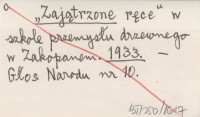 "Zajątrzone ręce" w
szkole przemysłu drzewnego
w Zakopanem. 1933. —
Głos Narodu nr 10.